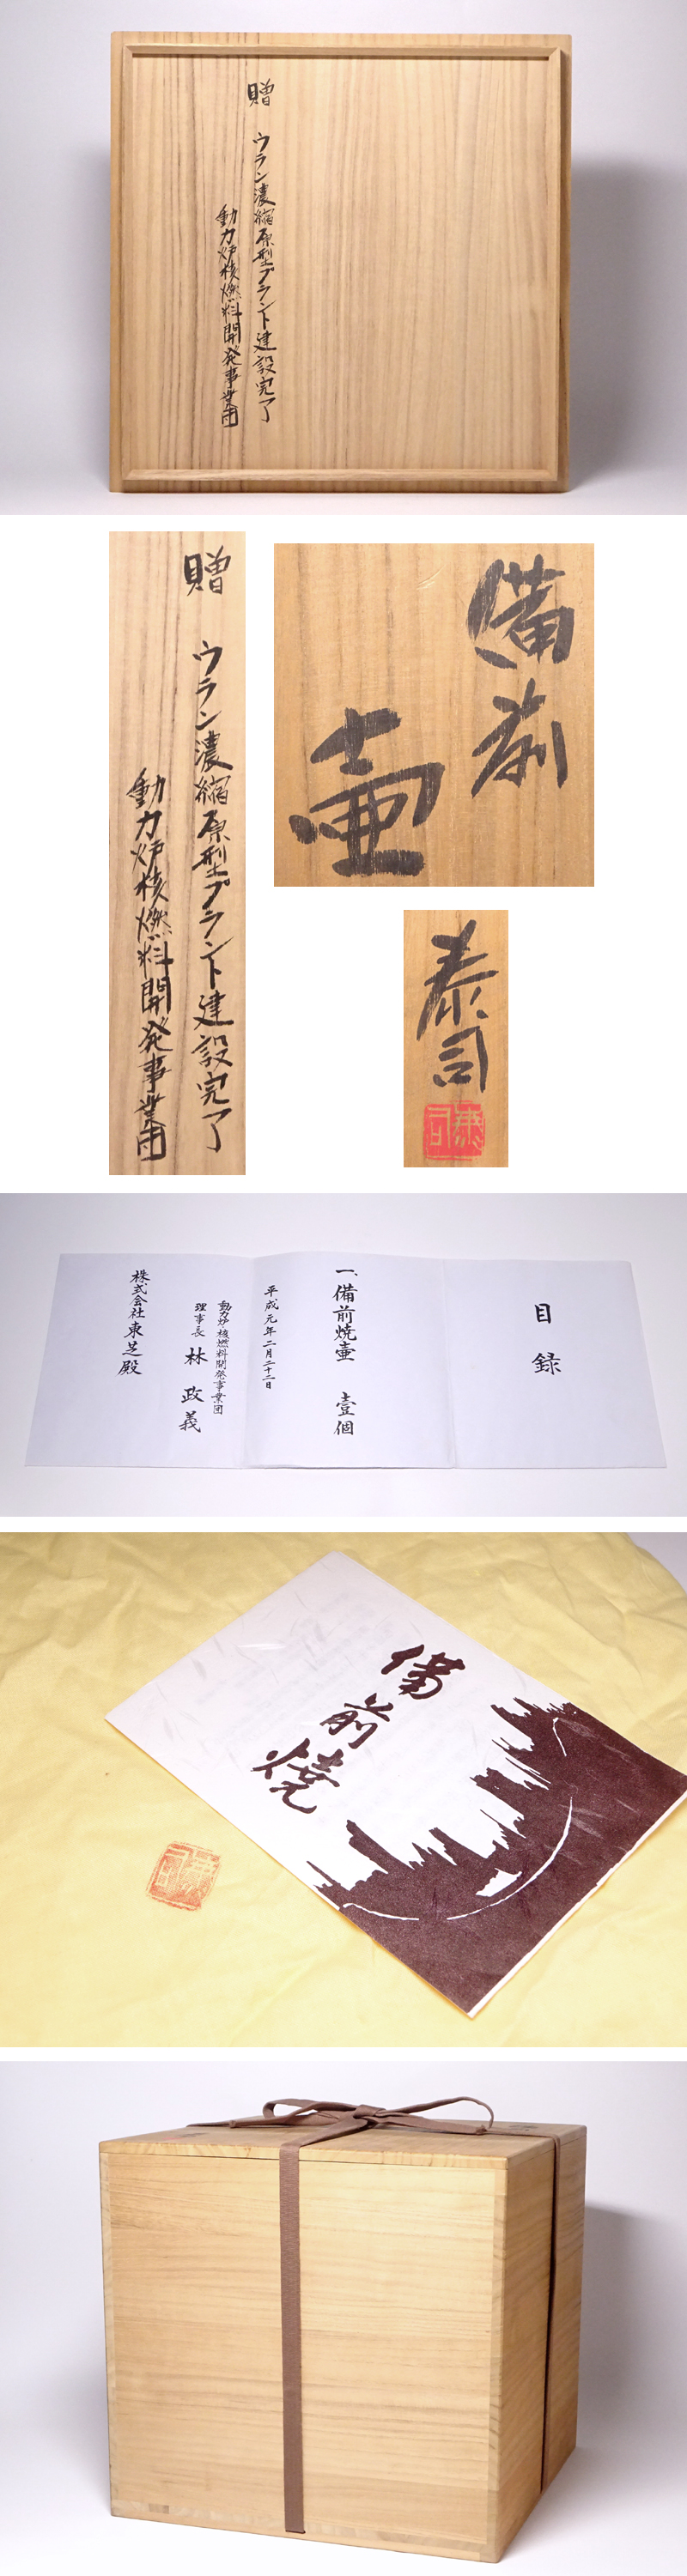 贈
ウラン濃縮原型プラント建設完了
動力炉核燃料開発事業団
贈
ウラン濃縮原型プラント建設完了
動力炉核燃料開発事業団
備前
壷
泰司
泰司
目録
一、備前焼壷 壹個
平成元年二月二十二日
動力炉核燃料開発事業団
理事長 林 政義
株式会社東芝殿
備前焼